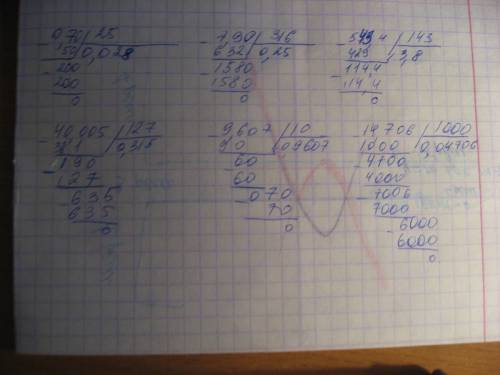 0,70 | 25
50 | 0,028
- 200
200
0
- 7,90 | 316
632 | 0,25
- 1580
1580
0
543,4 | 143
429 | 3,8
- 114,4
114,4
0
- 40,005 | 127
381 | 0,315
- 190
127
- 635
635
0
- 9,607 | 10
90 | 0,9607
- 60
60
- 070
70
0
- 14,706 | 1000
1000 | 0,04706
- 4700
4000
- 7006
7000
- 6000
6000
0